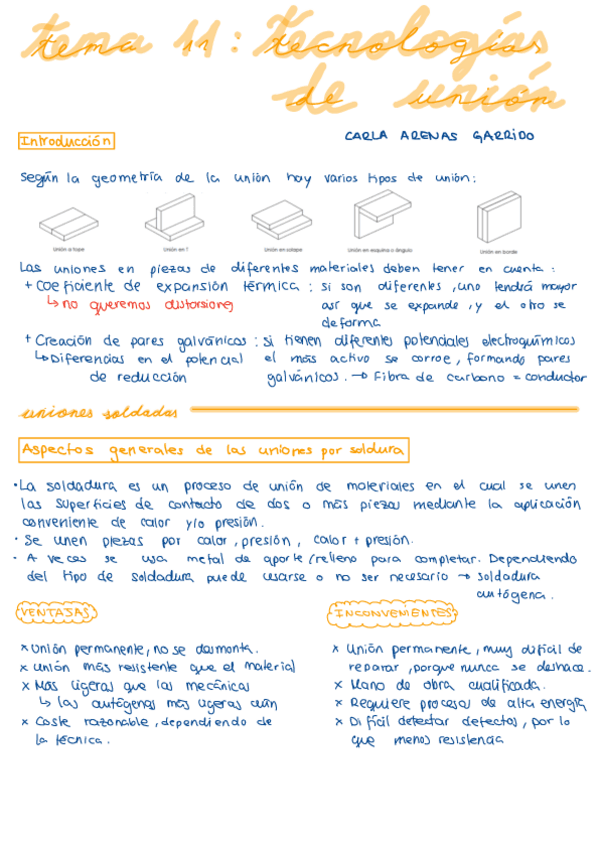 tema 11: tecnologías
de unión
Introducción
CARLA ARENAS GARRIDO
según la geometría de la unión hay varios tipos de unión:
Unión a tope
Unión en T
Unión en solape
Unión en esquina o ángulo
Unión en borde
Las uniones en piezas de diferentes materiales deben tener en cuenta:
+ Coeficiente de expansión térmica: si son diferentes, uno tendrá mayor
↳ no queremos distorsiones
así que se expande, y el otro se
deforma
+ Creación de pares galvánicos: si tienen diferentes potenciales electroquímicos
↳ Diferencias en el potencial
de reducción
el más activo se corroe, formando pares
galvánicos. → Fibra de carbono = conductor
uniones soldadas
Aspectos generales de las uniones por soldura
· La soldadura es un proceso de unión de materiales en el cual se unen
las superficies de contacto de dos o más piezas mediante la aplicación
conveniente de calor y/o presión.
· Se unen piezas por calor, presión, calor + presión.
· A veces se usa metal de aporte/relleno para completar. Dependiendo
del tipo de soldadura puede usarse o no ser necesario → soldadura
autógena.
VENTAJAS
x Unión permanente, no se desmonta.
x unión más resistente que el material
x Más ligeras que las mecánicas
↳ las autógenas más ligeras aún
x Coste razonable, dependiendo de
la técnica.
INCONVENIENTES
x Unión permanente, muy difícil de
reparar, porque nunca se deshace.
x Mano de obra cualificada.
x Requiere procesos de alta energía
x Difícil detectar defectos, por lo
que menos resistencia